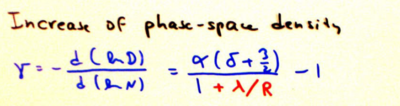 Increase of phase-space density
γ = - d(ln D) / d(ln N) = α(δ + 3/2) / 1 + λ/R - 1